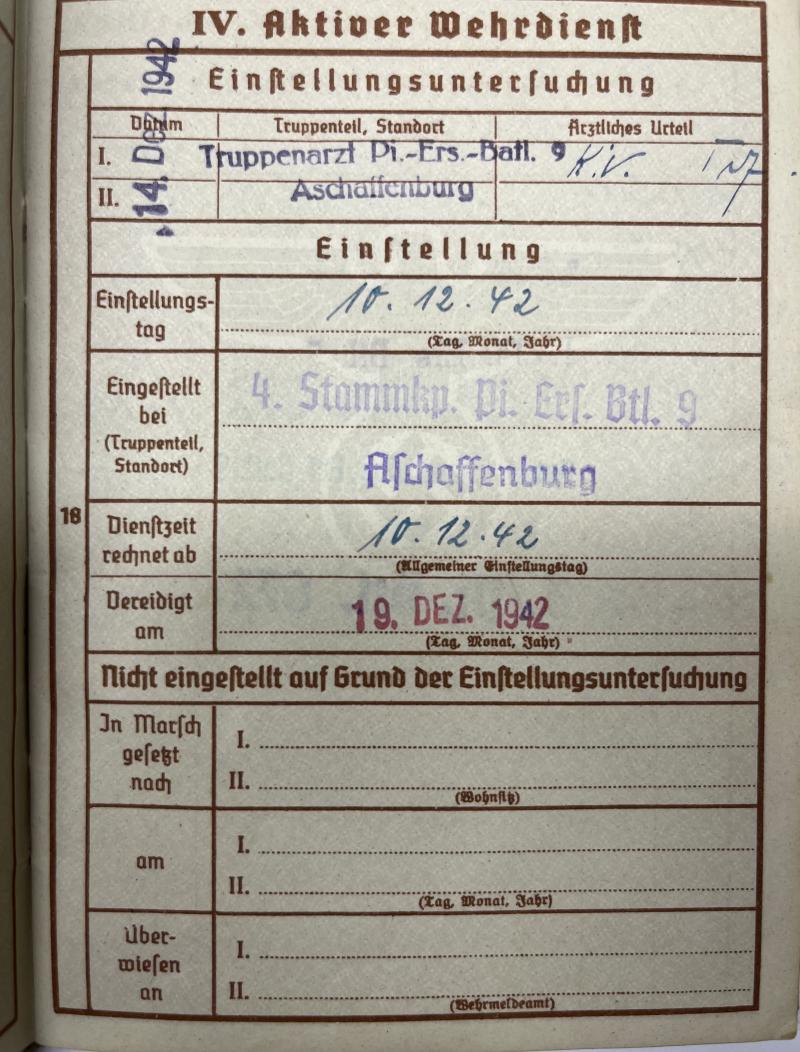 IV. Aktiver Wehrdienst
Einstellungsuntersuchung
Datum Truppenteil, Standort Ärztliches Urteil
14. Dez. 1942
I. Truppenarzt Pi.-Ers.-Batl. 9 K.V.
II. Aschaffenburg
Einstellung
Einstellungs-
tag
10. 12. 42
(Tag, Monat, Jahr)
Eingestellt
bei
(Truppenteil,
Standort)
4. Stammkp. Pi. Ers. Btl. 9
Aschaffenburg
16
Dienstzeit
rechnet ab
10. 12. 42
(Allgemeiner Einstellungstag)
Vereidigt
am
19. DEZ. 1942
(Tag, Monat, Jahr)
Nicht eingestellt auf Grund der Einstellungsuntersuchung
In Marsch
gesetzt
nach
I.
II.
(Wohnsitz)
am
I.
II.
(Tag, Monat, Jahr)
Über-
wiesen
an
I.
II.
(Wehrmeldeamt)